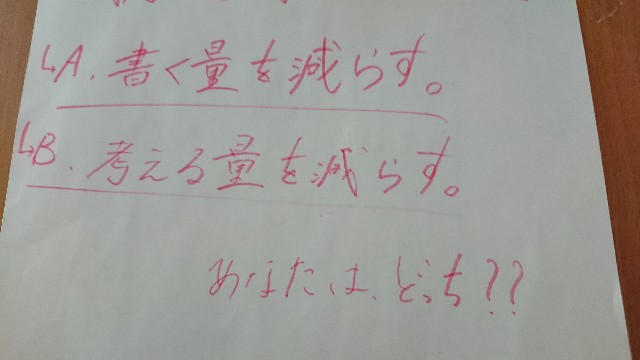 ↳A. 書く量を減らす。
↳B. 考える量を減らす。
あなたは、どっち??